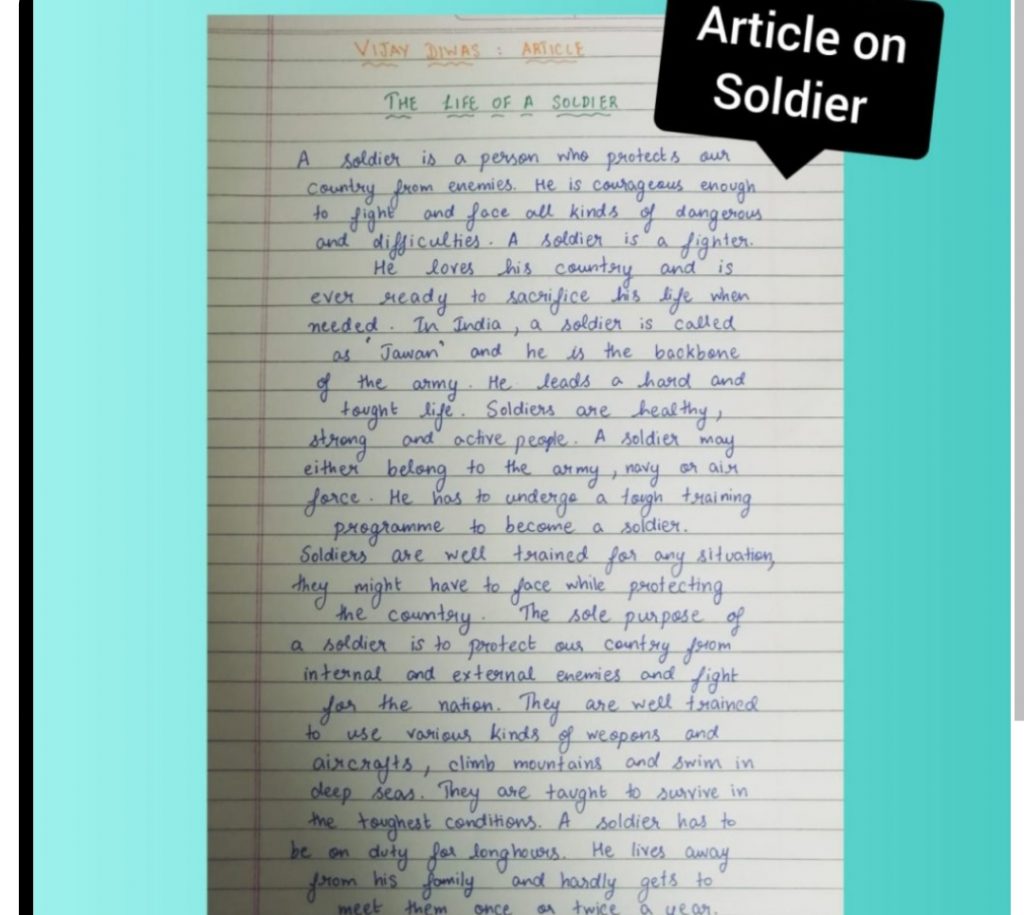 Article on
Soldier
VIJAY DIWAS : ARTICLE
THE LIFE OF A SOLDIER
A soldier is a person who protects our
country from enemies. He is courageous enough
to fight and face all kinds of dangerous
and difficulties. A soldier is a fighter.
He loves his country and is
ever ready to sacrifice his life when
needed. In India, a soldier is called
as 'Jawan' and he is the backbone
of the army. He leads a hard and
tought life. Soldiers are healthy,
strong and active people. A soldier may
either belong to the army, navy or air
force. He has to undergo a tough training
programme to become a soldier.
Soldiers are well trained for any situation,
they might have to face while protecting
the country. The sole purpose of
a soldier is to protect our country from
internal and external enemies and fight
for the nation. They are well trained
to use various kinds of weapons and
aircrafts, climb mountains and swim in
deep seas. They are taught to survive in
the toughest conditions. A soldier has to
be on duty for longhours. He lives away
from his family and hardly gets to
meet them once or twice a year.